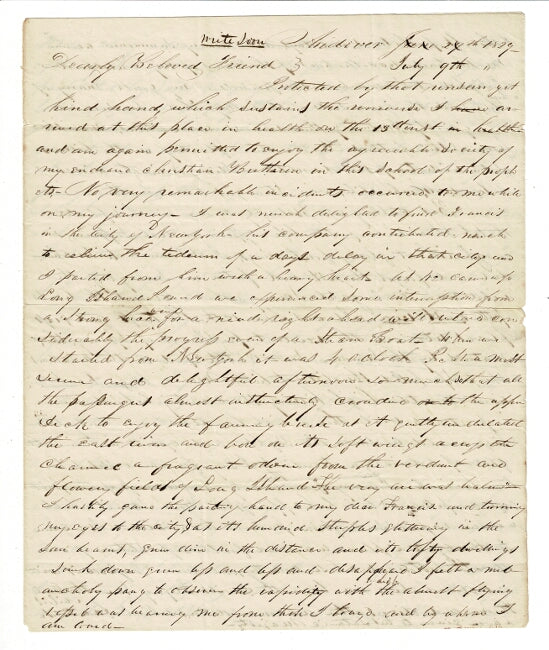 Write Soon Andover 29th 1829
Dearly Beloved Friend July 9th
Protected by that unseen yet
kind hand, which sustains the universe I ar
rived at this place in health on the 13th inst in health
and am again permitted to enjoy the agreeable society of
my endeared christian Brethren in this School of the proph
ets - No very remarkable incidents occurred to me while
on my journey - I was much delighted to find Francis
in the City of New York - his company contributed much
to relieve the tedium of a days delay in that city and
I parted from him with a heavy heart As we came up
Long Island Sound we experienced some interruption from
a strong for a wind right ahead will retard con
siderably the progress even of a Steam Boat When we
started from New York it was 4 oclock P.M. a most
serene and delightful afternoon so much so that all
the passengers almost instinctively crowded to the upper
Deck to enjoy the fanning breeze as it gently undulated
the east river and bore on its soft wings
a fragrant odour from the verdant and
flowery fields of Long Island "The very air was balm" -
I hastily gave the parting hand to my dear Francis and turning
my eyes to the city & its hundred Steeples glittering in the
sun beams, grew dim in the distance and its lofty dwellings
sunk down grew less and less and disappeared I felt a mel
ancholy pang to observe the rapidity with which the almost flying
vessel was bearing me from those I loved and by whom I
am loved -